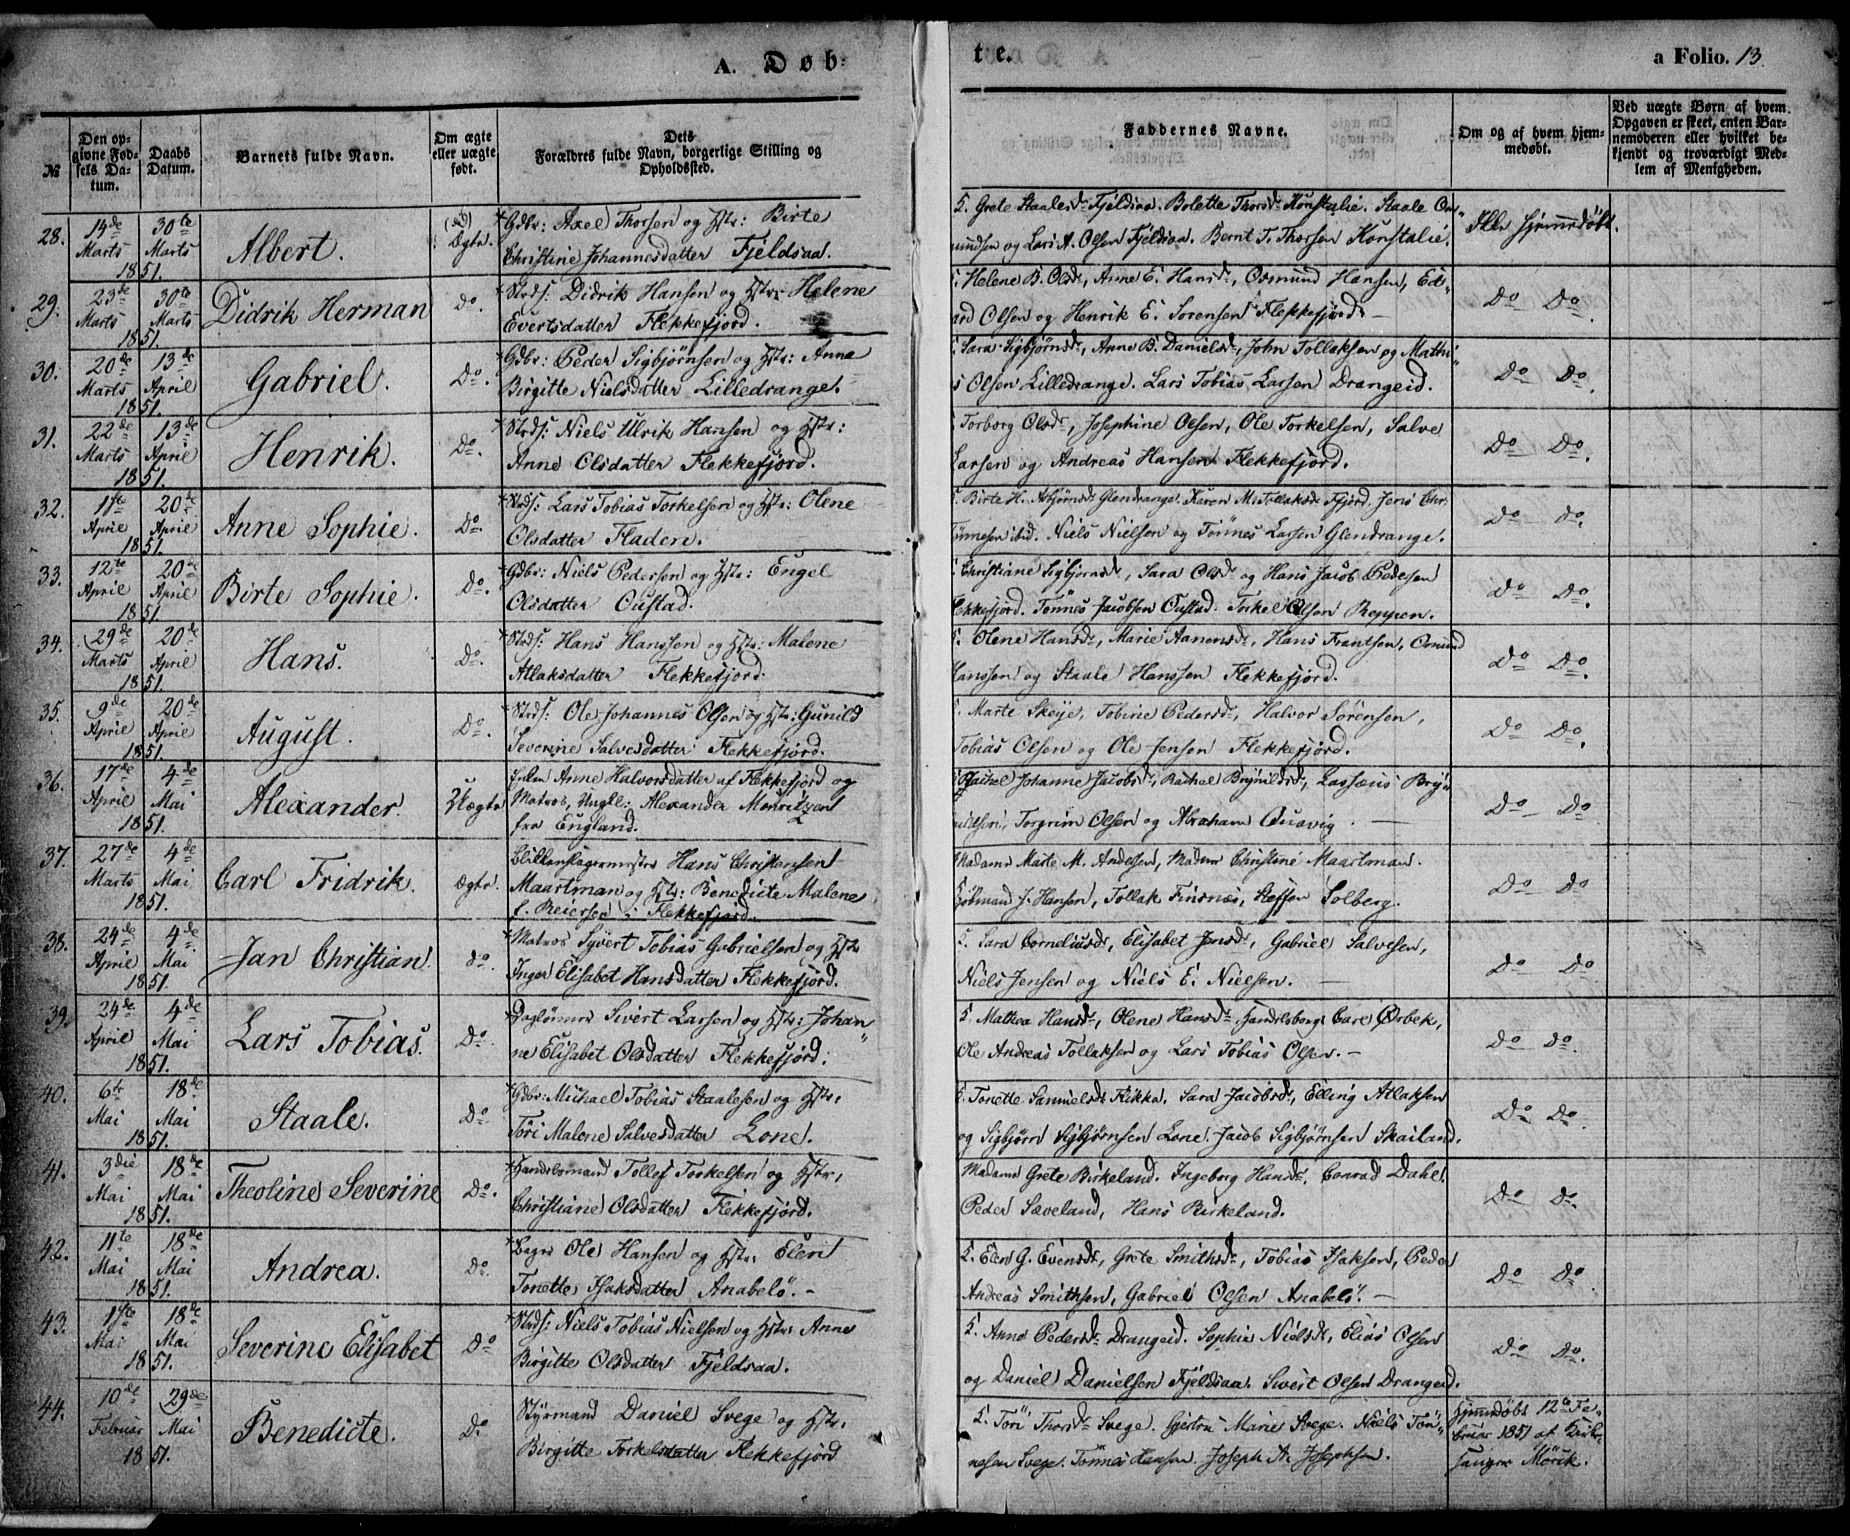 A. Døb=
te.
a Folio. 13.
№
Den op-
givne Fød-
sels Da-
tum.
Daabs
Datum.
Barnets fulde Navn.
Om ægte
eller uægte
født.
Dets
Forældres fulde Navn, borgerlige Stilling og
Opholdssted.
Faddernes Navne.
Om og af hvem hjem-
medøbt.
Ved uægte Børn af hvem
Opgaven er skeet, enten Bar-
nemoderen eller hvilket be-
kjendt og troværdigt Med-
lem af Menigheden.
28. 14de Marts 1851. 30te Marts Albert. Ægte. Gdbr: Axel Thorsen og Hstr: Birte
Christine Johannesdatter Fjeldsaa.
F. Grete Staalesd. Fjeldsaa. Bolette Thorsd. Konstalie. Staale Os-
mundsen og Lars A. Olsen Fjeldsaa. Bernt T. Thorsen Konstalie.
Ikke hjemmedøbt.
29. 23de Marts 1851. 30te Marts Didrik Herman Do. Strds: Didrik Hansen og Hstr: Helene
Evertsdatter Flekkefjord.
F. Helene B. Olsd., Anne E. Hansd., Osmund Hansen, Ed-
ard Olsen og Henrik E. Sørensen Flekkefjord. —
Do Do.
30. 20de Marts 1851. 13de April Gabriel. Do. Gdbr: Peder Sigbjørnsen og Hstr: Anna
Birgitte Nielsdatter Lilledrange.
F. Sara Sigbjørnsd., Anne B. Danielsd., John Tollaksen og Mathi-
s Olsen Lilledrange. Lars Tobias Larsen Drangeid.
Do Do.
31. 22de Marts 1851. 13de April Henrik. Do. Strds: Niels Ulrik Hansen og Hstr:
Anne Olsdatter Flekkefjord.
F. Torborg Olsd., Josephine Olsen, Ole Torkelsen, Salve
Larsen og Andreas Hansen Flekkefjord.
Do Do.
32. 1ste April 1851. 20de April Anne Sophie. Do. Strds: Lars Tobias Torkelsen og Hstr: Olene
Olsdatter Fladen.
F. Birte H. Asbjørnsd. Glendrange. Karen M. Tollaksd. Fjord. Jens Chr.
Tønnesen ibid. Niels Nielsen og Tönnes Larsen Glendrange.
Do Do.
33. 12te April 1851. 20de April Birte Sophie. Do. Gdbr: Niels Pedersen og Hstr: Engel
Olsdatter Oustad.
F. Christiane Sigbjørnsd., Sara Olsd. og Hans Jacob Pedersen
Flekkefjord. Tönnes Jacobsen Oustad. Torkel Olsen Reppen.
Do Do.
34. 29de Marts 1851. 20de April Hans. Do. Strds: Hans Hanssen og Hstr: Malene
Atlaksdatter Flekkefjord.
F. Olene Hansd., Marie Aanensd., Hans Frantsen, Osmund
Hanssen og Staale Hanssen Flekkefjord.
Do Do.
35. 9de April 1851. 20de April August. Do. Strds: Ole Johannes Olsen og Hstr: Gunild
Severine Salvesdatter Flekkefjord.
F. Marte Skeije, Tobine Pedersd., Halvor Sörensen,
Tobias Olsen og Ole Jensen Flekkefjord.
Do Do.
36. 17de April 1851. 4de Mai Alexander. Uægte Enken Anne Halvorsdatter af Flekkefjord og
Matros, Ungkl: Alexander Mouritzen
fra England.
Rachel Johanne Jacobsd., Rachel Brynildsd., Lassæus Bry-
nildsen, Torgrim Olsen og Abraham Quavig. —
Do Do.
37. 27de Marts 1851. 4de Mai Carl Fridrik. Ægte. Blikkenslagermester Hans Christensen
Maartman og Hstr: Benedicte Malene
f. Reiersen i Flekkefjord.
Madame Marte M. Andersen, Madame Christine Maartman.
Kjöbmand J. Hansen, Tollak Finsnæs, Steffen Solberg.
Do Do
38. 24de April 1851. 4de Mai Jan Christian. do. Matros Syvert Tobias Gabrielsen og Hstr
Inger Elisabet Hansdatter Flekkefjord.
F. Sara Corneliusd., Elisabet Jensd., Gabriel Salvesen,
Niels Jensen og Niels E. Nielsen. —
Do Do.
39. 24de April 1851. 4de Mai Lars Tobias. Do. Daglønner Sivert Larsen og Hstr: Johan-
ne Elisabet Olsdatter Flekkefjord.
F. Mathea Hansd., Olene Hansd. Handelsborg: Carl Ørbek,
Ole Andreas Tollaksen og Lars Tobias Olsen. —
Do Do.
40. 6te Mai 1851. 18de Mai Staale. Do. Gdbr: Michael Tobias Staalesen og Hstr:
Töri Malene Salvesdatter Lone.
F. Tonette Samuelsd. Flikka, Sara Jacobsd., Elling Atlaksen
og Sigbjørn Sigbjørnsen Lone. Jacob Sigbjørnsen Skailand.
Do Do.
41. 3die Mai 1851. 18de Mai Theoline Severine Do. Handelsmand Tollef Torkelsen og Hstr:
Christiane Olsdatter Flekkefjord.
Madame Grete Birkeland. Ingeborg Hansd. Conrad Dahl.
Peder Sæveland, Hans Birkeland.
Do Do.
42. 11te Mai 1851. 18de Mai Andrea. Do. Bager Ole Hansen og Hstr: Elen
Tonette Isaksdatter Anabelö. —
F. Elen G. Evensd., Grete Smithsd., Tobias Isaksen, Peder
Andreas Smithsen, Gabriel Olsen Anabelö. —
Do Do.
43. 1ste Mai 1851. 18de Mai Severine Elisabet Do Strds: Niels Tobias Nielsen og Hstr: Anne
Birgitte Olsdatter Fjeldsaa.
F. Anne Pedersd. Drangeid. Sophie Nielsd., Elias Olsen
og Daniel Danielsen Fjeldsaa. Sivert Olsen Drangeid.
Do Do.
44. 10de Februar 1851. 29de Mai Benedicte. Do Styrmand Daniel Svege og Hstr:
Birgitte Torkelsdatter Flekkefjord
F. Töri Thorsd. Svege. Gjertru Marie Svege. Niels Tön-
nesen Svege. Tönnes Hansen. Joseph A. Josephsen.
Hjemmedøbt 12te Fe-
bruar 1851 af Kirke-
sanger Mörck.